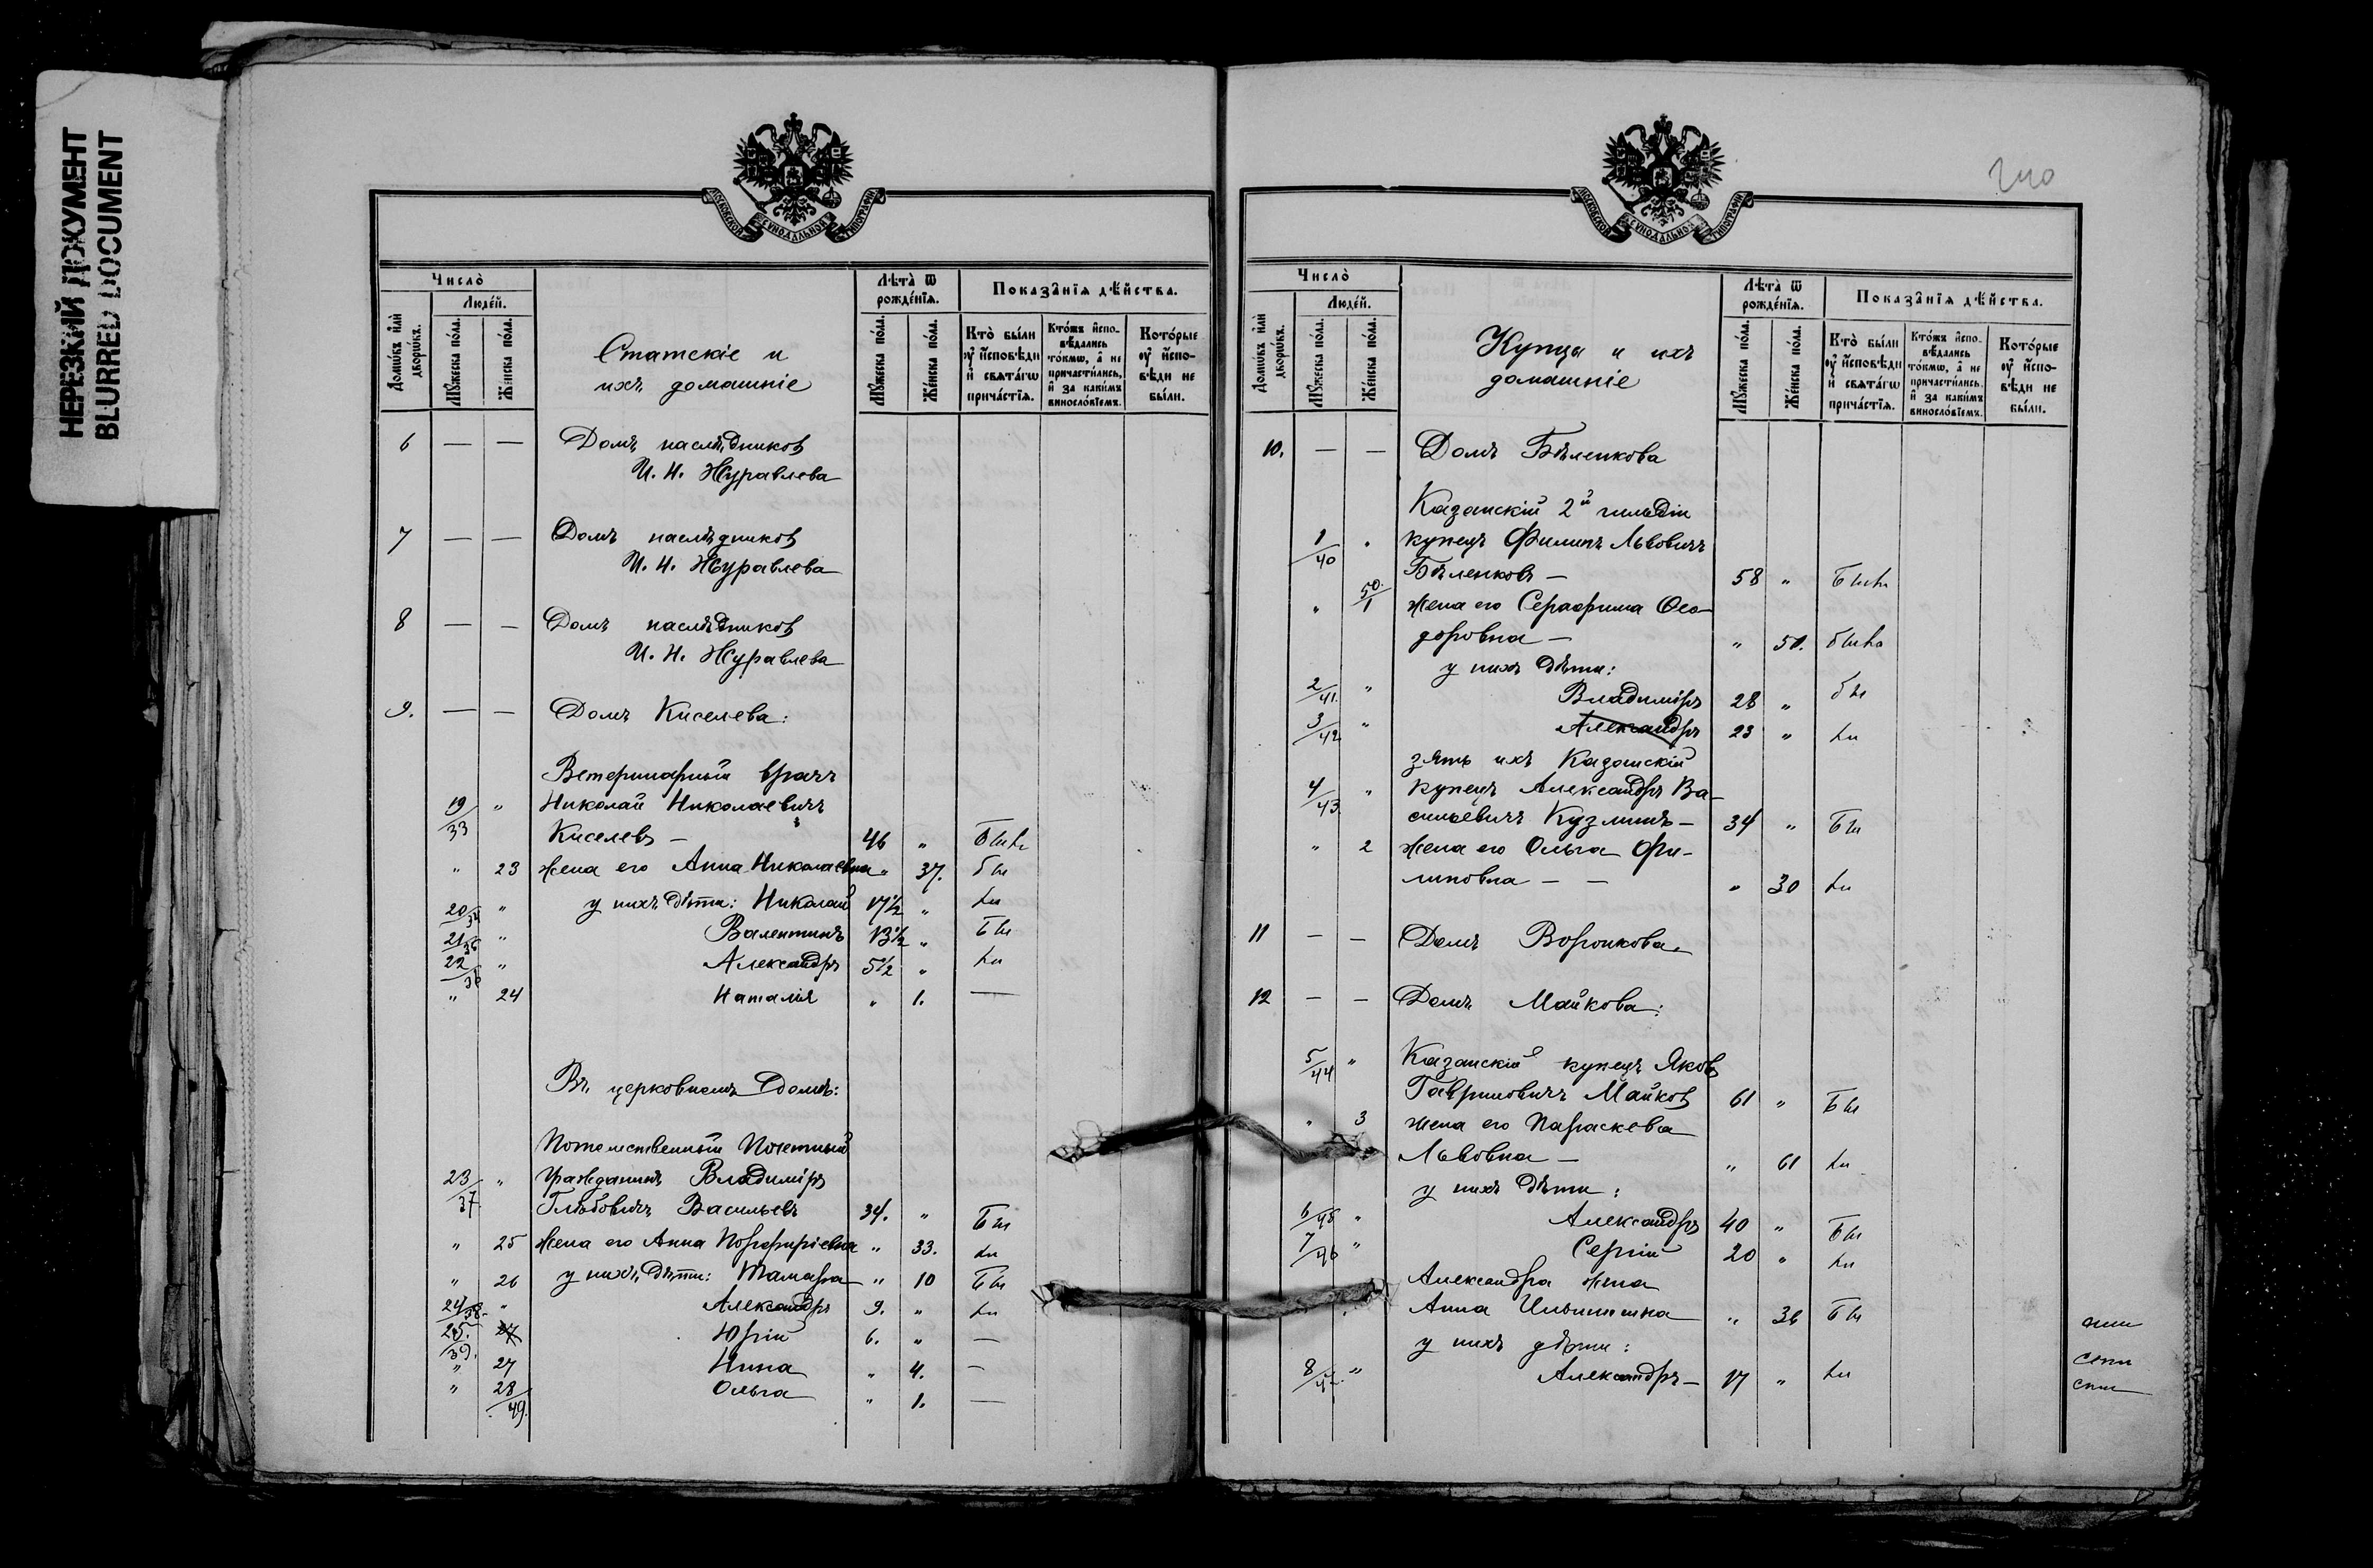 НЕРЕЗКИЙ ДОКУМЕНТ
BLURRED DOCUMENT
МОСКОВСКОЙ СѴНОДАЛЬНОЙ ТИПОГРАФІИ
Число̀
Люде́й.
Домѡ́въ и҆лѝ дворѡ́въ.
Мꙋ́жеска по́ла.
Же́нска по́ла.
Статскіе и
ихъ домашніе
Лѣ́та ѿ рожде́нїѧ.
Мꙋ́жеска по́ла.
Же́нска по́ла.
Показа̑нїѧ дѣ́йства.
Кто̀ бы́ли ᲂу҆ и҆сповѣ́ди и҆ свѧта́гѡ прича́стїѧ.
Кто́жъ и҆сповѣ́дались то́кмѡ, а҆ не причасти́лись, и҆ за каки́мъ винословїемъ.
Кото́рые ᲂу҆ и҆сповѣ́ди не бы́ли.
6 — — Домъ наслѣдниковъ
И. Н. Журавлева
7 — — Домъ наслѣдниковъ
И. Н. Журавлева
8 — — Домъ наслѣдниковъ
И. Н. Журавлева
9. — — Домъ Киселева:
Ветеринарный врачъ
19/33 " Николай Николаевичъ
Киселевъ — 46 "
" 23 жена его Анна Николаевна " 37.
20/34 " у нихъ дѣти: Николай 17½ "
21/35 " Валентинъ 13½ "
22/36 " Александръ 5½ "
" 24 Наталія " 1. —
Въ церковномъ домѣ:
Потомственный Почетный
23/37. " гражданинъ Владиміръ
Глѣбовичъ Васильевъ 34. "
" 25 жена его Анна Порфиріевна " 33.
" 26 у нихъ дѣти: Тамара " 10
24/38. " Александръ 9. "
25./39. 27 Юрій 6. " —
" 27 Нина " 4. —
" 28/49. Ольга " 1. —
240
МОСКОВСКОЙ СѴНОДАЛЬНОЙ ТИПОГРАФІИ
Число̀
Люде́й.
Домѡ́въ и҆лѝ дворѡ́въ.
Мꙋ́жеска по́ла.
Же́нска по́ла.
Купцы и ихъ
домашніе
Лѣ́та ѿ рожде́нїѧ.
Мꙋ́жеска по́ла.
Же́нска по́ла.
Показа̑нїѧ дѣ́йства.
Кто̀ бы́ли ᲂу҆ и҆сповѣ́ди и҆ свѧта́гѡ прича́стїѧ.
Кто́жъ и҆сповѣ́дались то́кмѡ, а҆ не причасти́лись, и҆ за каки́мъ винословїемъ.
Кото́рые ᲂу҆ и҆сповѣ́ди не бы́ли.
10. — — Домъ Бѣленкова
Казанскій 2й гильдіи
1/40 . купецъ Филипъ Львовичъ
Бѣленковъ — 58 "
" 50/1 жена его Серафима Ѳео-
доровна — " 50.
у нихъ дѣти:
2/41. " Владиміръ 28 "
3/42 " Александръ 23 "
зять ихъ Казанскій
4/43. " купецъ Александръ Ва-
сильевичъ Кузминъ — 34 "
" 2 жена его Ольга Фи-
липовна — — " 30
11 — — Домъ Воронкова.
12 — — Домъ Майкова:
5/44 " Казанскій купецъ Яковъ
Гавриловичъ Майковъ 61 "
" 3 жена его Параскева
Львовна — " 61
у нихъ дѣти:
6/45 " Александръ 40 "
7/46 " Сергій 20 "
Александра жена
Анна Ильинишна " 36
у нихъ дѣти:
8/47. " Александръ — 17 "